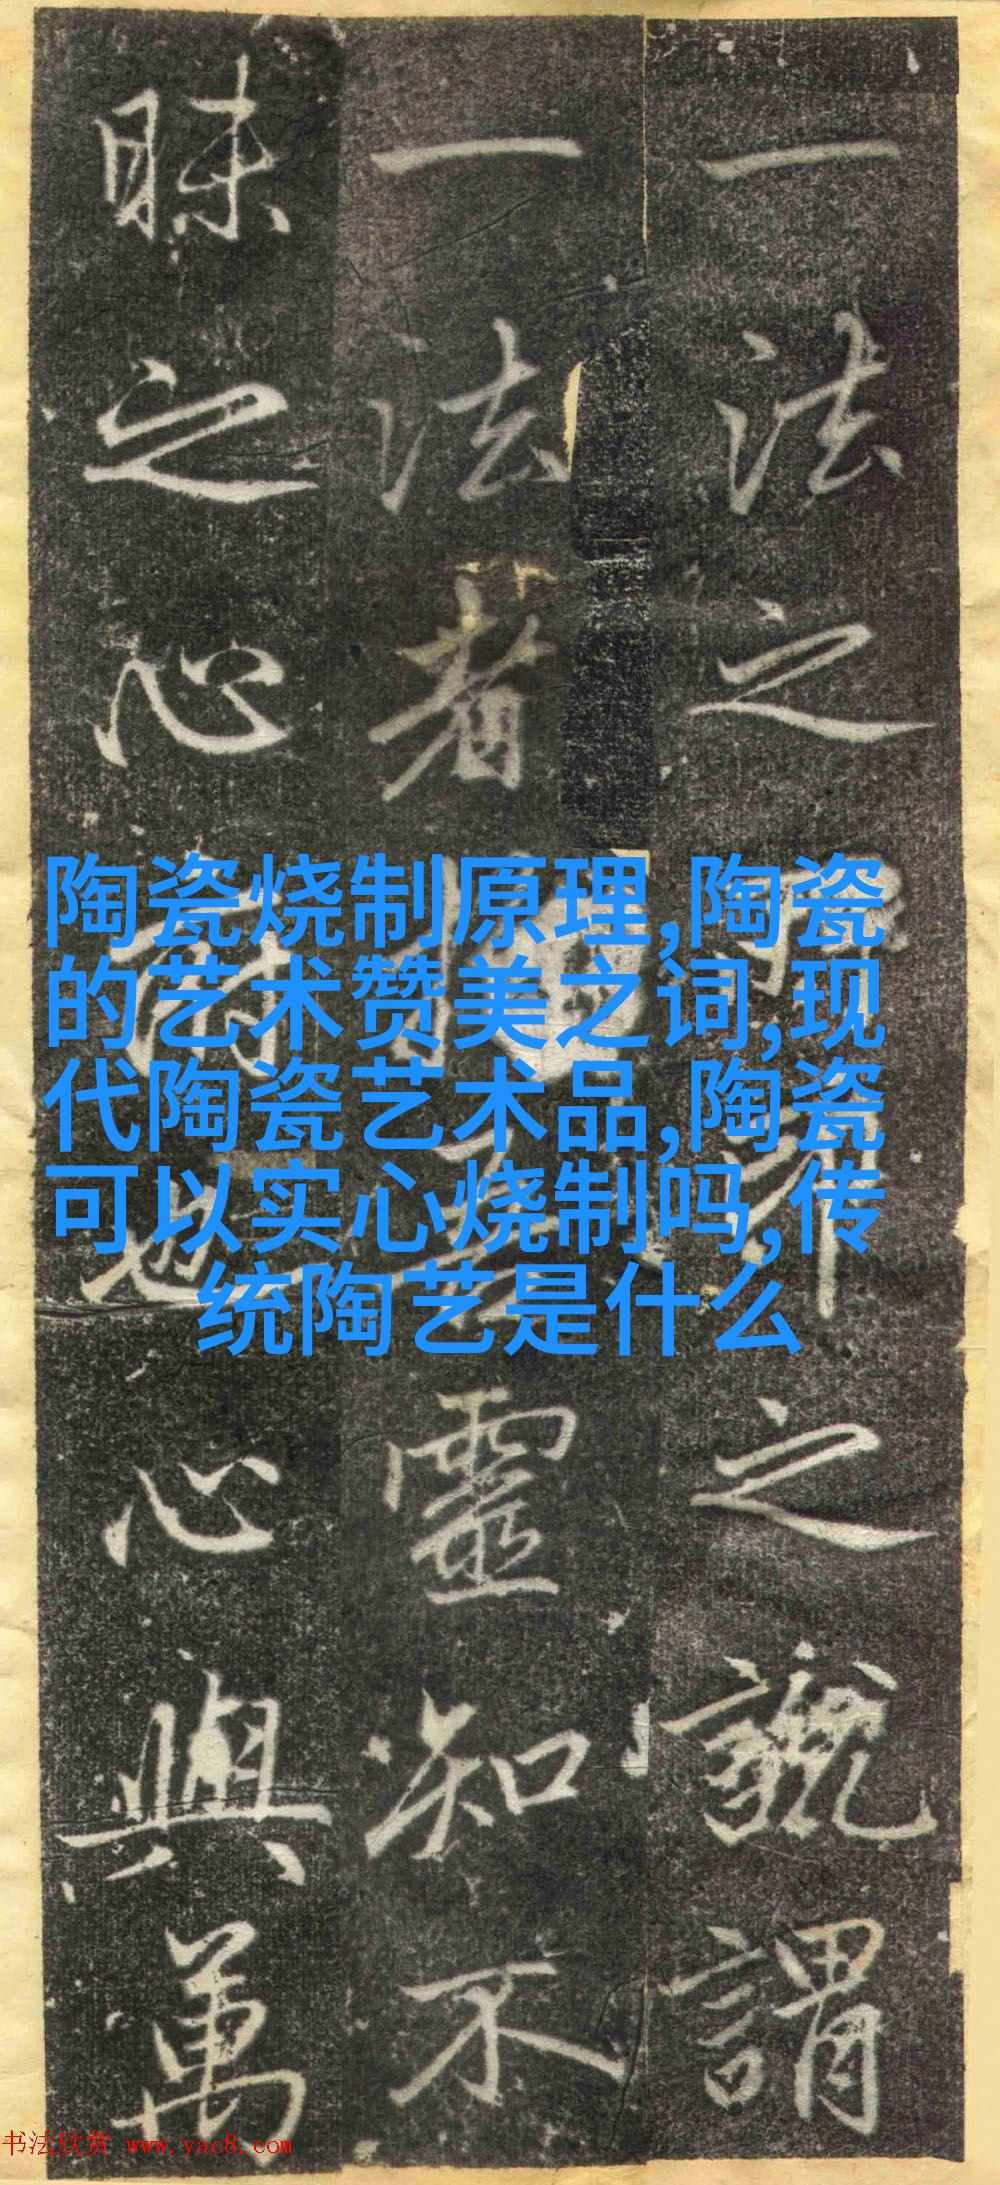 一法之之號謂
一法者靈知不
昧之心也心與萬
陶瓷烧制原理,陶瓷
的艺术赞美之词,现
代陶瓷艺术品,陶瓷
可以实心烧制吗,传
统陶艺是什么
书法欣赏 www.yac8.com